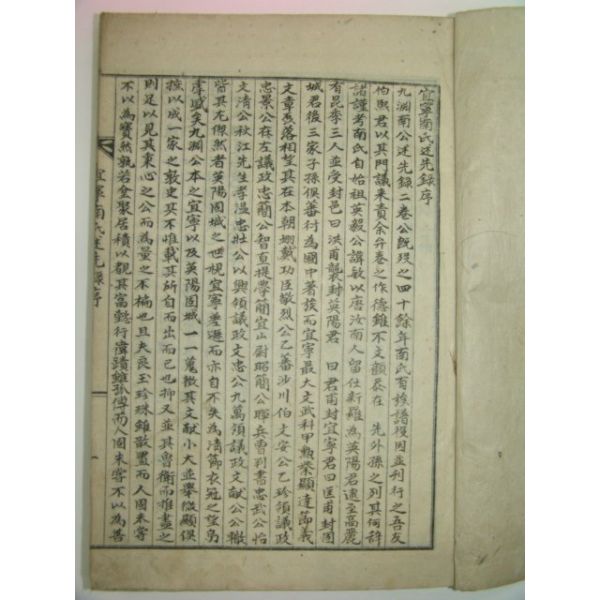 宜寧南氏述先錄序
九淵南公述先錄二卷公旣歿之四十餘年南氏有族譜役因並刊行之吾友
伯熙君以其門議来責余弁卷之作德雖不文顧忝在 先外孫之列其何辭
諸謹考南氏自始祖英毅公諱敏以唐汝南人留仕新羅為英陽君逮至高麗
有昆季三人並受封邑曰洪甫襲封英陽君 曰君甫封宜寧君曰匡甫封固
城君後三家子孫俱蕃衍為國中著族而宜寧最大文武科甲勲榮顯達節義
文章磊落相望其在本朝翊戴功臣敬烈公乙蕃沙川伯文安公乙珍領議政
忠景公在左議政忠簡公智直提學簡宜山尉昭簡公暉兵曹判書忠武公怡
文清公秋江先生孝溫忠壯公以興領議政文忠公九萬領議政文献公公轍
皆其尤傑然者英陽固城之世視宜寧差遜而亦自不失為清節衣冠之望烏
虖盛矣九淵公本之宜寧以及英陽固城一一蒐徴其文献小大並擧微顯俱
摭以成一家之敦史其不惟載其所自而出而已也抑又並其魯衛而惟盡之
則足以見其秉心之公而為量之不褊也且夫良玉珍珠雖散置而人固未嘗
不以為寳然孰若盒聚居積以觀其富懿行偉蹟雖孤傳而人固未嘗不以為善
宜寧南氏述先錄序
一